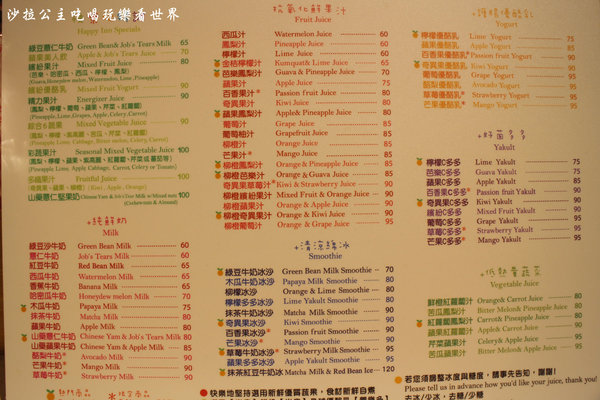 沙拉公主吃喝玩樂看世界
Happy Inn Specials
綠豆薏仁牛奶 Green Bean& Job's Tears Milk 65
蘋果美人飲 Apple & Job's Tears Milk 80
繽紛果汁 Mixed Fruit Juice 80
繽紛優酪乳 Mixed Fruit Yogurt 90
精力果汁 Energizer Juice 90
綜合6蔬果 Mixed Vegetable Juice 90
彩蔬果汁 Seasonal Mixed Vegetable Juice 100
多纖果汁 Fruitful Juice 90
(奇異果、蘋果、柳橙) (Kiwi , Apple , Orange)
山藥薏仁堅果奶 Chinese Yam & Job's Tear Milk & Mixed nuts 100
(Cashewnuts & Almond)
+純鮮奶
Milk
綠豆沙牛奶 Green Bean Milk 60
薏仁牛奶 Job's Tears Milk 60
紅豆牛奶 Red Bean Milk 60
西瓜牛奶 Watermelon Milk 60
香蕉牛奶 Banana Milk 65
哈密瓜牛奶 Honeydew melon Milk 65
木瓜牛奶 Papaya Milk 75
抹茶牛奶 Matcha Milk 80
蘋果牛奶 Apple Milk 80
山藥薏仁牛奶 Chinese Yam & Job's Tears Milk 80
山藥蘋果牛奶 Chinese Yam & Apple Milk 85
酪梨牛奶* Avocado Milk 90
芒果牛奶* Mango Milk 90
草莓牛奶* Strawberry Milk 90
抗氧化鮮果汁
Fruit Juice
西瓜汁 Watermelon Juice 60
鳳梨汁 Pineapple Juice 60
檸檬汁 Lime Juice 60
金桔檸檬汁 Kumquat& Lime Juice 65
芭樂鳳梨汁 Guava & Pineapple Juice 70
蘋果汁 Apple Juice 75
百香果汁* Passion fruit Juice 80
奇異果汁 Kiwi Juice 80
蘋果鳳梨汁 Apple& Pineapple Juice 80
葡萄汁 Grape Juice 80
葡萄柚汁 Grapefruit Juice 80
柳橙汁 Orange Juice 80
芒果汁* Mango Juice 80
柳橙鳳梨汁 Orange & Pineapple Juice 85
柳橙芭樂汁 Orange & Guava Juice 85
奇異果草莓汁* Kiwi & Strawberry Juice 90
柳橙繽紛汁 Mixed Fruit & Orange Juice 90
柳橙蘋果汁 Orange & Apple Juice 90
柳橙奇異果汁 Orange & Kiwi Juice 90
柳橙葡萄汁 Orange & Grape Juice 95
+清涼綿冰
Smoothie
綠豆牛奶冰沙 Green Bean Milk Smoothie 70
木瓜牛奶冰沙 Papaya Milk Smoothie 80
柳橙冰沙 Orange Smoothie 90
檸檬多多冰沙 Lime Yakult Smoothie 90
抹茶牛奶冰沙 Matcha Milk Smoothie 90
奇異果冰沙 Kiwi Smoothie 90
百香果冰沙* Passion fruit Smoothie 90
芒果冰沙* Mango Smoothie 90
草莓牛奶冰沙* Strawberry Milk Smoothie 90
蘋果多多冰沙 Apple Yakult Smoothie 90
抹茶紅豆牛奶冰沙 Matcha Milk & Red Bean Ice 120
Yogurt
檸檬優酪乳 Lime Yogurt 75
蘋果優酪乳 Apple Yogurt 80
百香果優酪乳* Passion fruit Yogurt 80
奇異果優酪乳 Kiwi Yogurt 80
葡萄優酪乳 Grape Yogurt 90
草莓優酪乳* Strawberry Yogurt 90
芒果優酪乳* Mango Yogurt 90
+好菌多多
Yakult
檸檬C多多 Lime Yakult 70
芭樂C多多 Guava Yakult 75
蘋果C多多 Apple Yakult 75
百香果C多多* Passion fruit Yakult 80
奇異果C多多 Kiwi Yakult 80
繽紛C多多 Mixed Fruit Yakult 80
葡萄C多多 Grape Yakult 90
草莓C多多* Strawberry Yakult 90
芒果C多多* Mango Yakult 90
+低熱量蔬菜
Vegetable Juice
鮮橙紅蘿蔔汁 Orange& Carrot Juice 80
苦瓜鳳梨汁 Bitter Melon& Pineapple Juice 80
紅蘿蔔鳳梨汁 Carrot& Pineapple Juice 80
蘋果紅蘿蔔汁 Apple& Carrot Juice 80
芹菜蘋果汁 Celery& Apple Juice 80
苦瓜蘋果汁 Bitter Melon& Apple Juice 80
快樂地堅持選用新鮮優質蔬果，食材新鮮自煮
若您須調整冰度與糖度，請事先告知，謝謝!
Please tell us in advance how you'd like your juice, thank you!
去冰/少冰，去糖/少糖